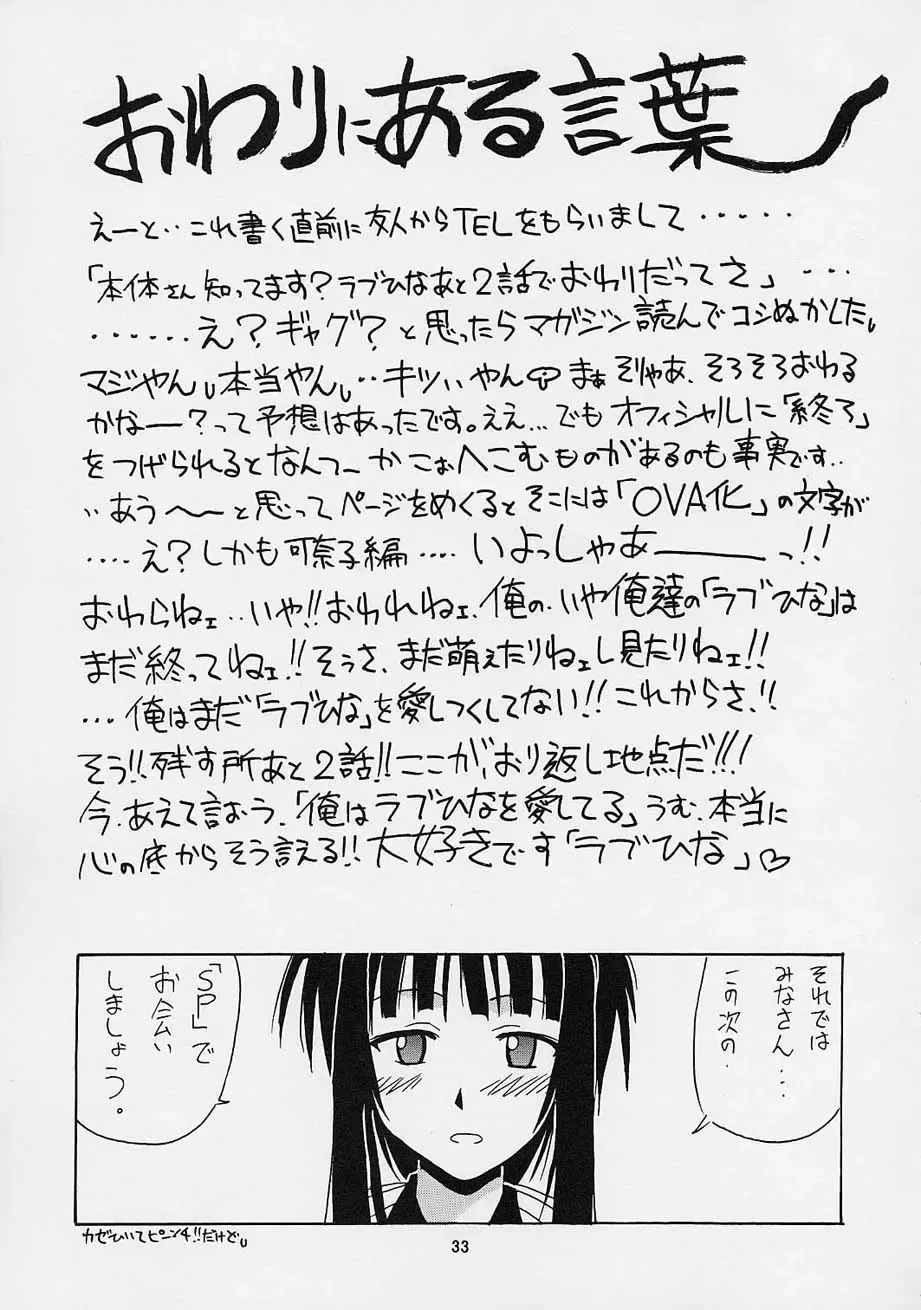 おわりにある言葉
えーと‥これ書く直前に友人からTELをもらいまして・・・・・
「本体さん知ってます？ラブひなあと2話でおわりだってさ」・・・・
・・・・・・え？ギャグ？と思ったらマガジン読んでコシぬかした。
マジやん。本当やん。‥キツいやん まぁそりゃあ、そろそろおわる
かなー？って予想はあったです。ええ…でもオフィシャルに「終了」
をつげられるとなんてーかこぉへこむものがあるのも事実です‥
‥あう〜〜と思ってページをめくるとそこには「OVA化」の文字が
・・・・え？しかも可奈子編・・・・いよっしゃあーーーっ!!
おわらねェ‥いや!!おわれねェ、俺の、いや俺達の「ラブひな」は
まだ終ってねェ!!そうさ、まだ萌えたりねェし見たりねェ!!
・・・俺はまだ「ラブひな」を愛しつくしてない!!これからさ!!
そう!!残す所あと2話!!ここが、おり返し地点だ!!!
今、あえて言おう、「俺はラブひなを愛してる」うむ、本当に
心の底からそう言える!!大好きです「ラブひな」♡
それでは
みなさん・・・
この次の
「SP」で
お会い
しましょう。
カゼひいてピーンチ!!だけど。
33